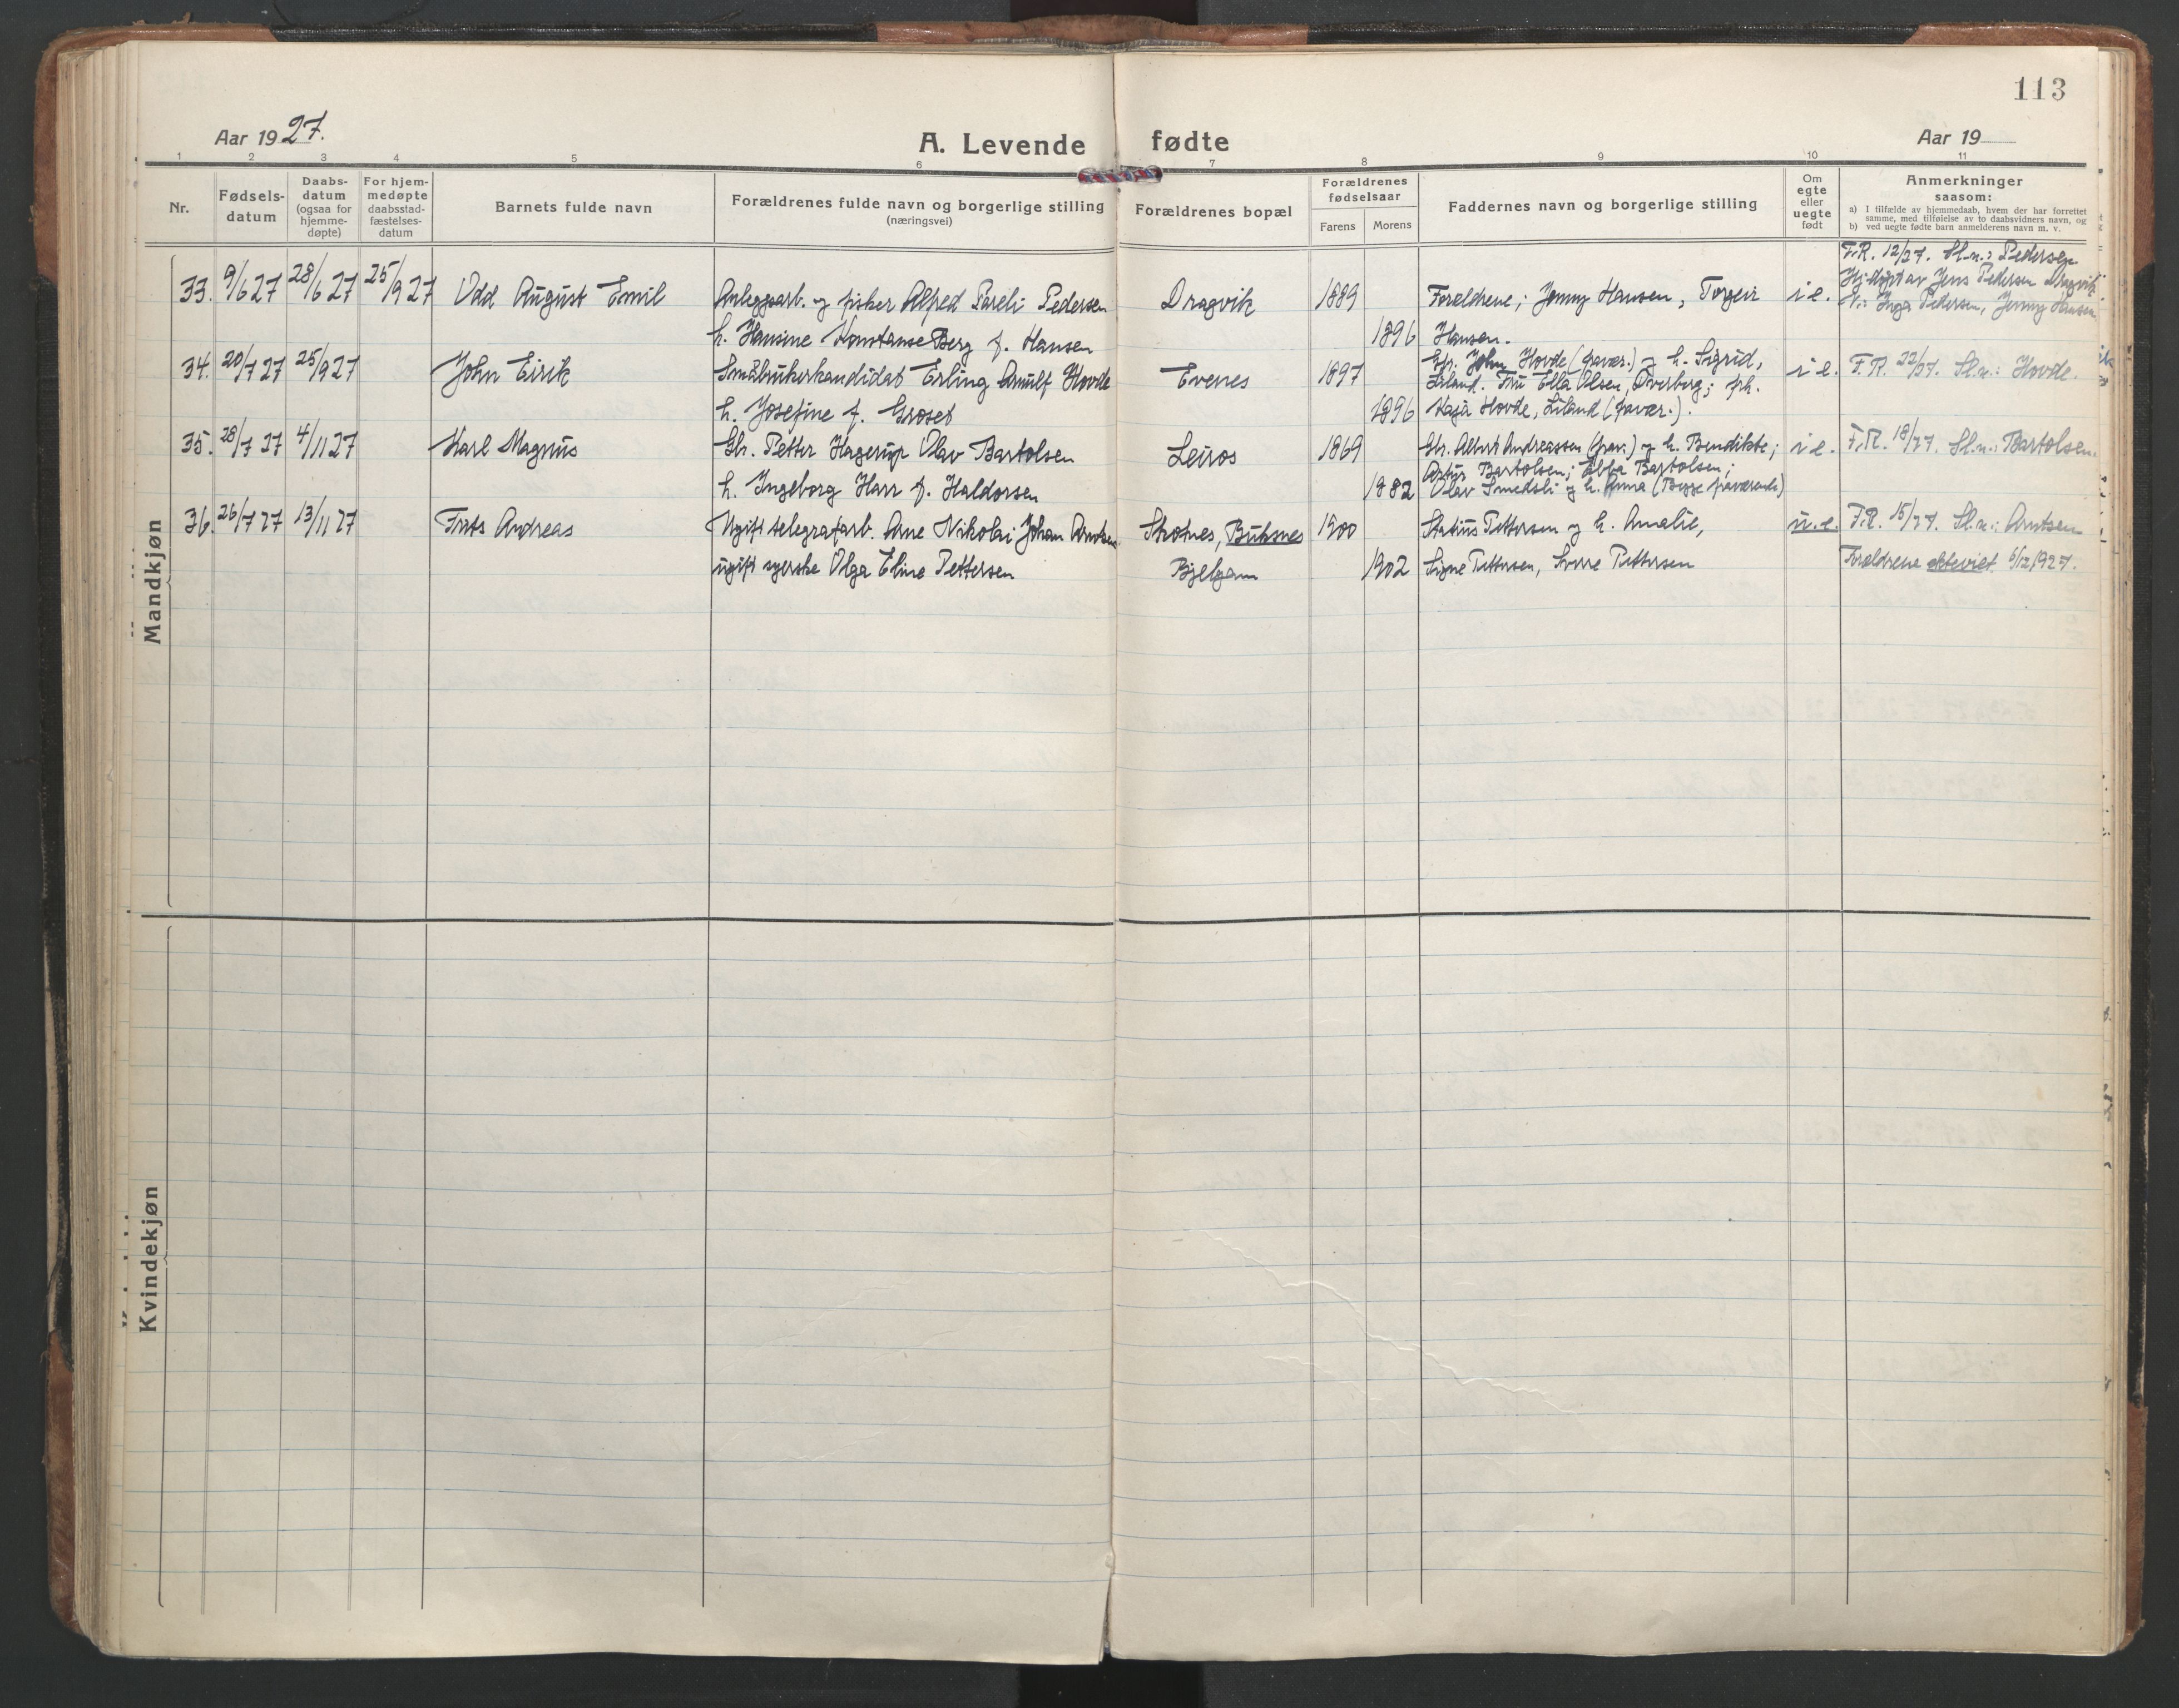 113
Aar 1927.
A. Levende fødte
Aar 19
1 2 3 4 5 6 7 8 9 10 11
Nr.
Fødsels-
datum
Daabs-
datum
(ogsaa for
hjemme-
døpte)
For hjem-
medøpte
daabsstad-
fæstelses-
datum
Barnets fulde navn
Forældrenes fulde navn og borgerlige stilling
(næringsvei)
Forældrenes bopæl
Forældrenes
fødselsaar
Farens Morens
Faddernes navn og borgerlige stilling
Om
egte
eller
uegte
født
Anmerkninger
saasom:
a) I tilfælde av hjemmedaab, hvem der har forrettet
samme, med tilføielse av to daabsvidners navn, og
b) ved uegte fødte barn anmelderens navn m. v.
Mandkjøn
F.R. 12/27. Sl.n.: Pedersen
33. 9/6 27 28/6 27 25/9 27 Odd August Emil Anleggsarb. og fisker Alfred Pareli Pedersen Dragvik 1889 Foreldrene; Jenny Hansen, Torgeir i e. Hj.døpt av Jens Pedersen Dragvik.
V.: Inga Pedersen, Jenny Hansen
h. Hansine Konstanse Berg f. Hansen 1896 Hansen.
34. 20/7 27 25/9 27 John Eirik Småbrukerkandidat Erling Arnulf Hovde Evenes 1897 Gbr. John Hovde (fravær.) og h. Sigrid, i e. F.R. 22/27. Sl.n.: Hovde.
Liland. Fru Ella Olsen, Øverberg; frk.
h. Josefine f. Groset 1896 Kaja Hovde, Liland (fravær.).
35. 28/7 27 4/11 27 Karl Magnus Gbr. Petter Hagerup Olav Bartolsen Leiros 1869 Gbr. Albert Andreassen (frav.) og h. Bendikte; i e. F.R. 18/27. Sl.n.: Bartolsen.
Artur Bartolsen; Ebba Bartolsen;
h. Ingeborg Harr f. Haldorsen 1882 Olav Smedsli og h. Anna (Begge fraværende)
36. 26/7 27 13/11 27 Frits Andreas Ugift telegrafarb. Arne Nikolai Johan Arntsen Skotnes, Buksnes 1900 Statius Pettersen og h. Amalie, u.e. F.R. 15/27. Sl.n.: Arntsen
ugift syerske Olga Eline Pettersen Bjelgam 1902 Signe Pettersen, Sverre Pettersen Foreldrene ekteviet 6/12 1927.
Kvindekjøn